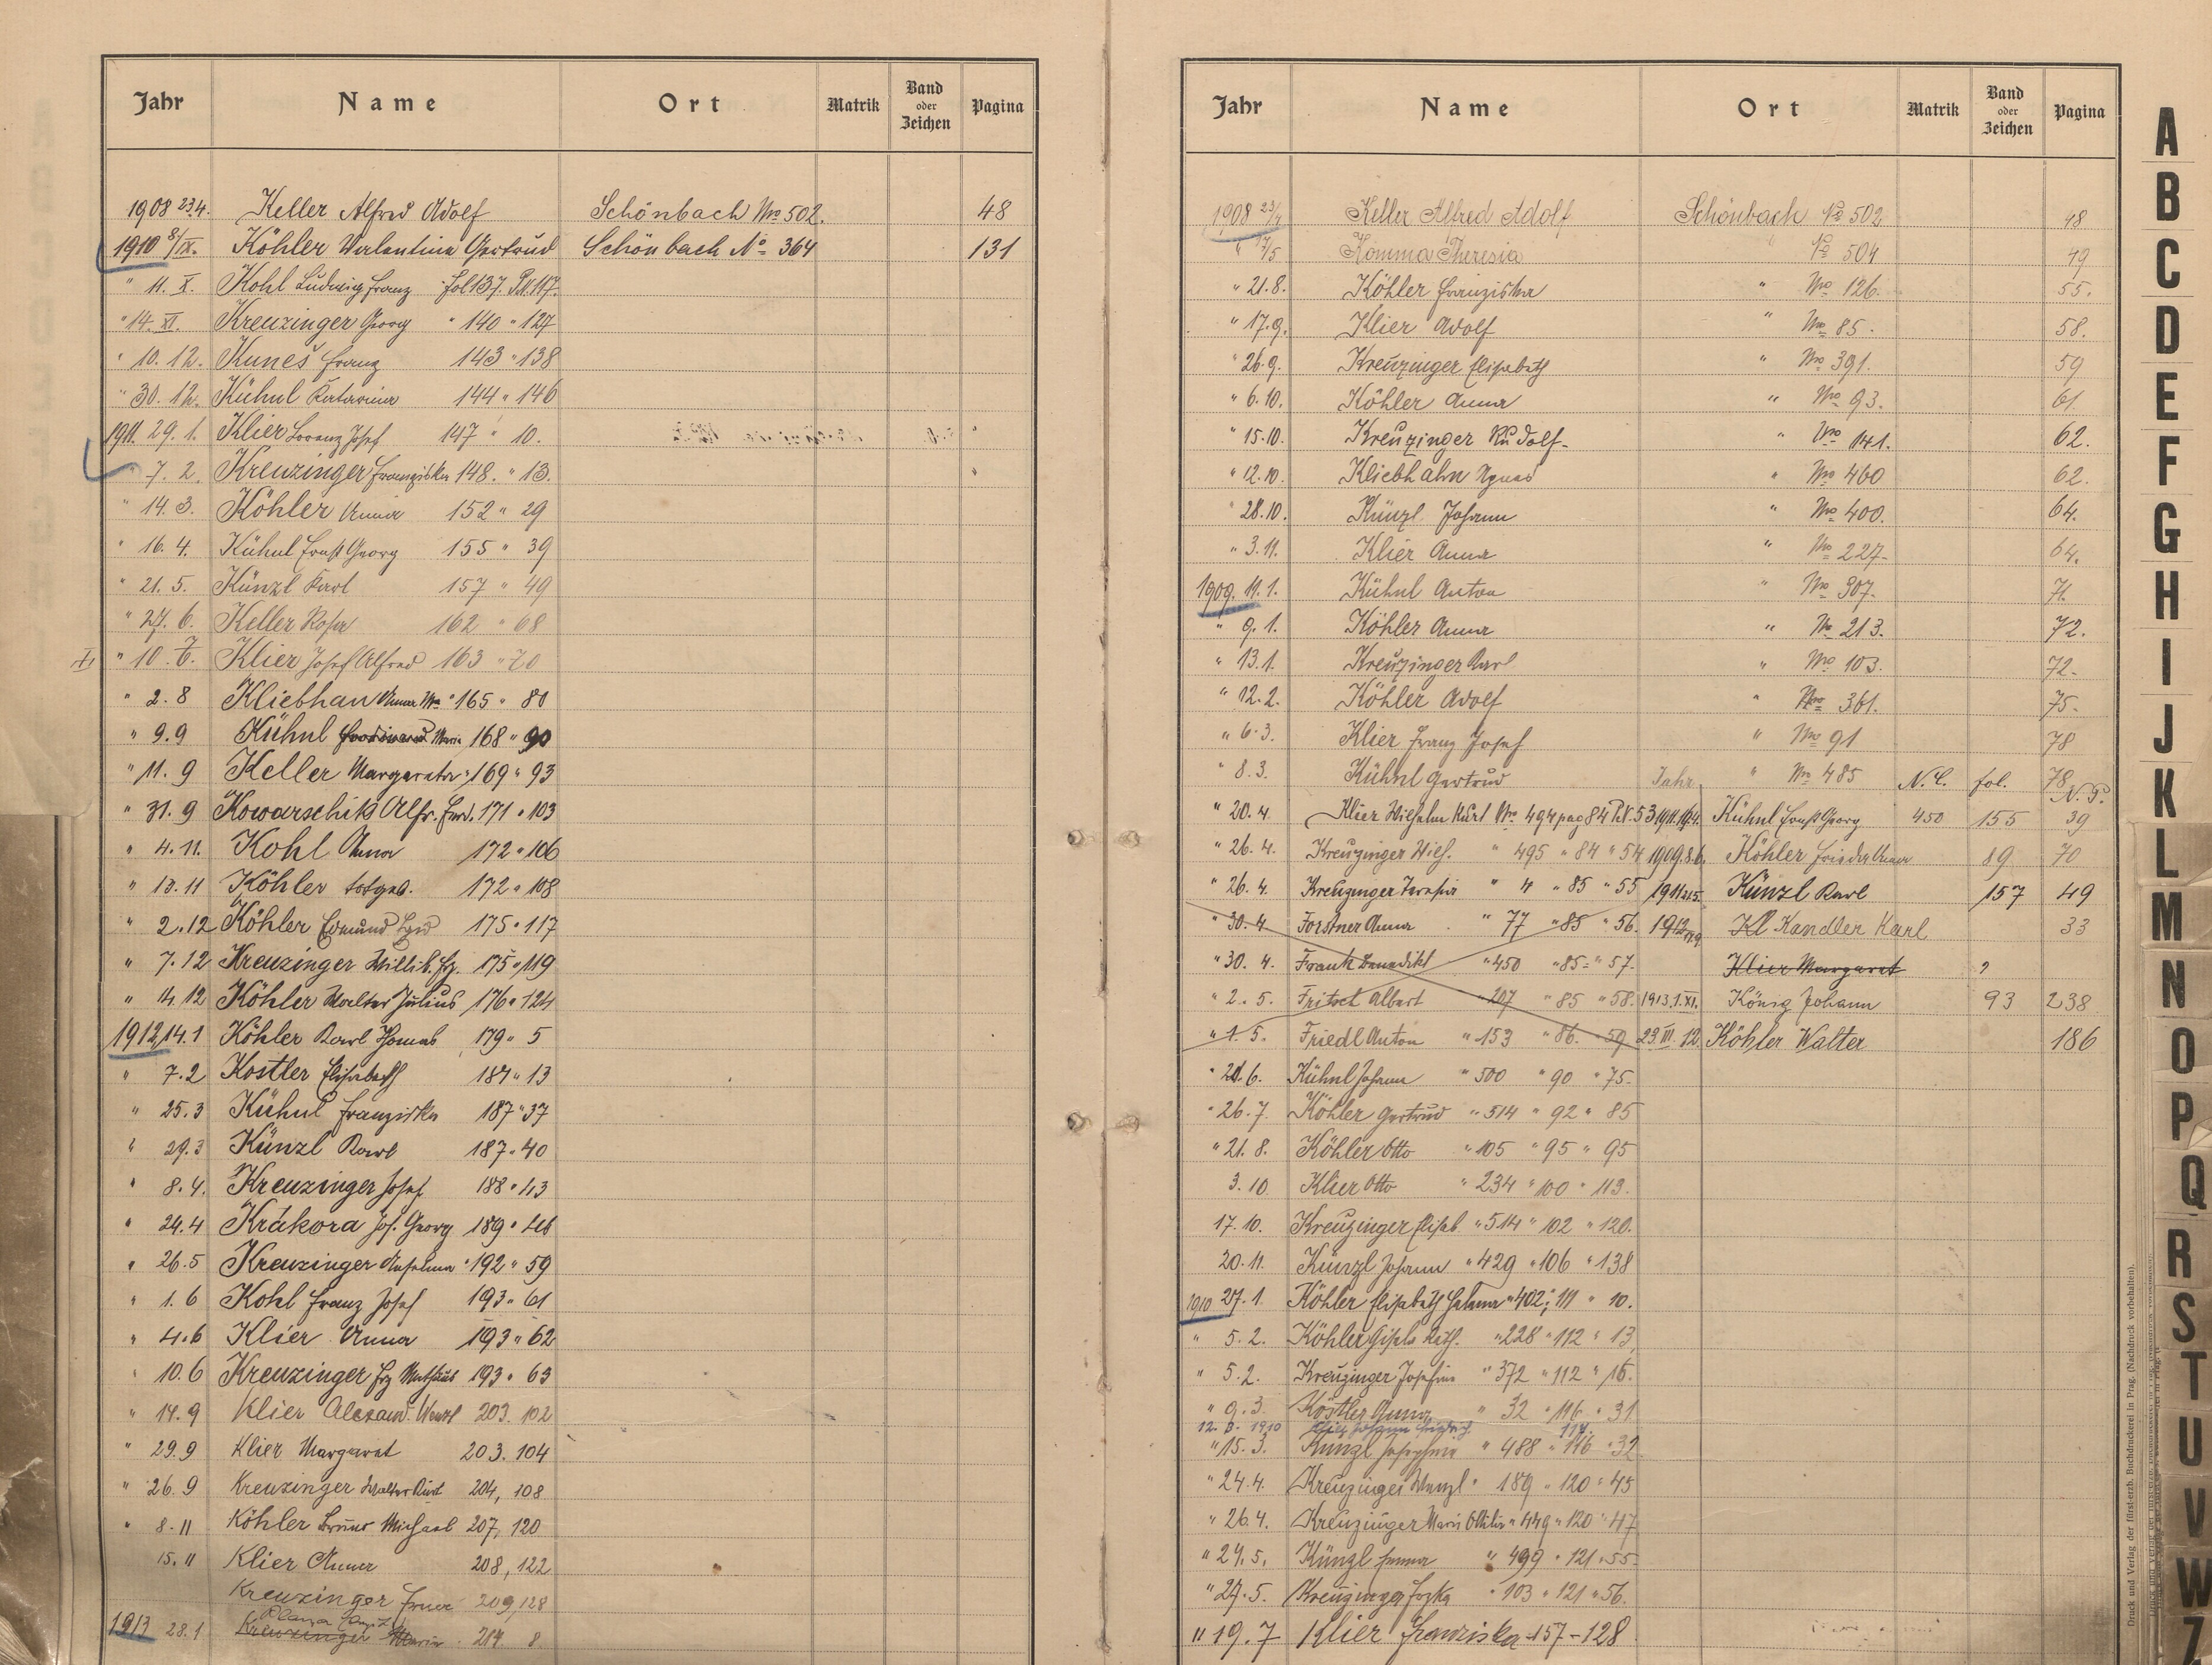 Jahr Name Ort Matrik Band oder Zeichen Pagina
1908 23.4. Keller Alfred Adolf Schönbach No 502. 48
1910 8/IX. Köhler Valentina Gertrud Schönbach No 364 131
" 11. X. Kohl Ludwig Franz fol 137. P.N. 117.
" 14. XI. Kreuzinger Georg " 140 " 127
" 10. 12. Kuneš Franz 143 " 138
" 30. 12. Kühnl Katarina 144 " 146
1911. 29. 1. Klier Lorenz Josef 147 " 10.
" 7. 2. Kreuzinger Franziska 148. " 13.
" 14. 3. Köhler Anna 152 " 29
" 16. 4. Kühnl Ernst Georg 155 " 39
" 21. 5. Künzl Karl 157 " 49
" 27. 6. Keller Rosa 162 " 68
" 10. Klier Josef Alfred 163 " 70
" 2. 8 Kliebhan Anna 165 " 80
" 9. 9 Kühnl Maria 168 " 90
" 11. 9 Keller Margareta 169 " 93
" 31. 9 Kowarschik Alfr. Ferd. 171 " 103
" 4. 11. Kohl Anna 172 " 106
" 13. 11 Köhler totgeb. 172 " 108
" 2. 12 Köhler Edmund 175 " 117
" 7. 12 Kreuzinger Willib. Fz. 175 " 119
" 14. 12 Köhler Walter Julius 176 " 124
1912 14. 1 Köhler Karl Thomas 179 " 5
" 7. 2 Köstler Elisabeth 184 " 13
" 25. 3 Kühnl Franziska 187 " 37
" 29. 3 Künzl Karl 187 " 40
" 8. 4. Kreuzinger Josef 188 " 43
" 24. 4 Krákora Jos. Georg 189 " 46
" 26. 5 Kreuzinger Anselma 192 " 59
" 1. 6 Kohl Franz Josef 193 " 61
" 4. 6 Klier Anna 193 " 62
" 10. 6 Kreuzinger Frz Mathäus 193 " 63
" 14. 9 Klier Alexand. Wenzl 203. 102
" 29. 9 Klier Margaret 203. 104
" 26. 9 Kreuzinger Walter Kurt 204, 108
" 8. 11 Köhler Bruno Michael 207, 120
15. 11 Klier Anna 208, 122
Kreuzinger Erna 209, 128
1913 28. 1 Kreuzinger Maria 214 8
Jahr Name Ort Matrik Band oder Zeichen Pagina
1908 23/4 Keller Alfred Adolf Schönbach No 502 48
" 17/5 Komma Theresia " No 504 49
" 21. 8. Köhler Franziska " No 126. 55.
" 17. 9. Klier Adolf " No 85. 58.
" 26. 9. Kreuzinger Elisabeth " No 391. 59
" 6. 10. Köhler Anna " No 93. 61.
" 15. 10. Kreuzinger Rudolf " No 141. 62.
" 12. 10. Kliebhahn Agnes " No 460 62.
" 28. 10. Künzl Johann " No 400. 64.
" 3. 11. Klier Anna " No 227. 64.
1909. 11. 1. Kühnl Anton " No 307. 71.
" 9. 1. Köhler Anna " No 213. 72.
" 13. 1. Kreuzinger Karl " No 103. 72.
" 12. 2. Köhler Adolf " No 361. 75.
" 6. 3. Klier Franz Josef " No 91 78
" 8. 3. Kühnl Gertrud Jahr " No 485 N.C. fol. 78 N.P.
" 20. 4. Klier Wilhelm Kurt No 494 pag 84 P.N. 53 1911. 16.4. Kühnl Ernst Georg 450 155 39
" 26. 4. Kreuzinger Wilh. " 495 " 84 " 54 1909. 8. 6. Köhler Frieda Anna 89 70
" 26. 4. Kreuzinger Theresia " 4 " 85 " 55 1911 21.5. Künzl Karl 157 49
" 30. 4 Forstner Anna " 77 " 85 " 56. 1912 Kl Kandler Karl 33
" 30. 4. Frank Benedikt " 450 " 85 " 57. Klier Margaret ?
" 2. 5. Fritsch Albert " 207 " 85 " 58. 1913. 1. XI. König Johann 93 238
" 1. 5. Friedl Anton " 153 " 86. " 59 23. III. 12. Köhler Walter 186
" 21. 6. Kühnl Johann " 500 " 90 " 75.
" 26. 7. Köhler Gertrud " 514 " 92 " 85
" 21. 8. Köhler Otto " 105 " 95 " 95
3. 10. Klier Otto " 234 " 100 " 113.
17. 10. Kreuzinger Elisab " 514 " 102 " 120.
20. 11. Künzl Johann " 429 " 106 " 138
1910 27. 1. Köhler Elisabeth Helena " 402 " 111 " 10.
" 5. 2. Köhler Gisela Kath. " 228 " 112 " 13,
" 5. 2. Kreuzinger Josefine " 372 " 112 " 15.
" 9. 3. Köstler Anna " 32 " 116 " 31
12. 3. 1910 Johann Friedrich 117.
" 15. 3. Künzl Josephine " 488 " 116 " 32
" 24. 4. Kreuzinger Wenzl " 189 " 120 " 45
" 26. 4. Kreuzinger Marie Othilie " 449 " 120 " 47
" 24. 5. Künzl Emma " 499 " 121 " 55
" 27. 5. Kreuzinger Frzka " 103 " 121 " 56.
" 19. 7 Klier Franziska - 157 - 128
A
B
C
D
E
F
G
H
I
J
K
L
M
N
O
P
Q
R
S
T
U
V
W
Z
Druck und Verlag der fürst-erzb. Buchdruckerei in Prag. (Nachdruck vorbehalten).